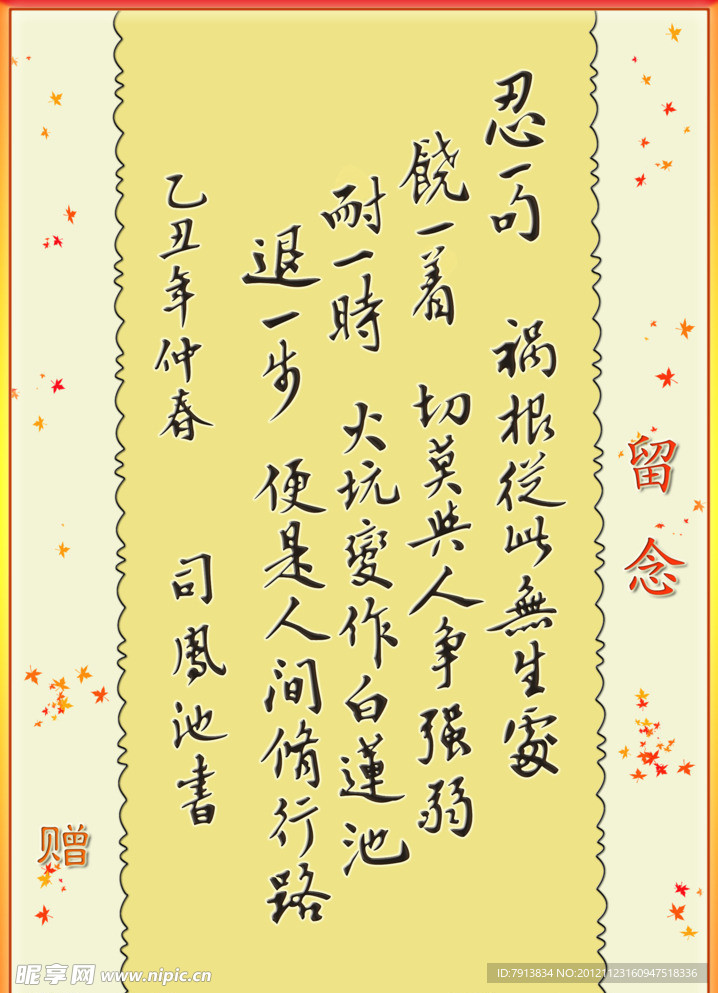 留念
忍一句 祸根從此無生處
饒一着 切莫與人争强弱
耐一時 火坑變作白蓮池
退一步 便是人间脩行路
乙丑年仲春 司鳳池書
赠
昵享网 www.nipic.cn
ID:7913834 NO:20121123160947518336